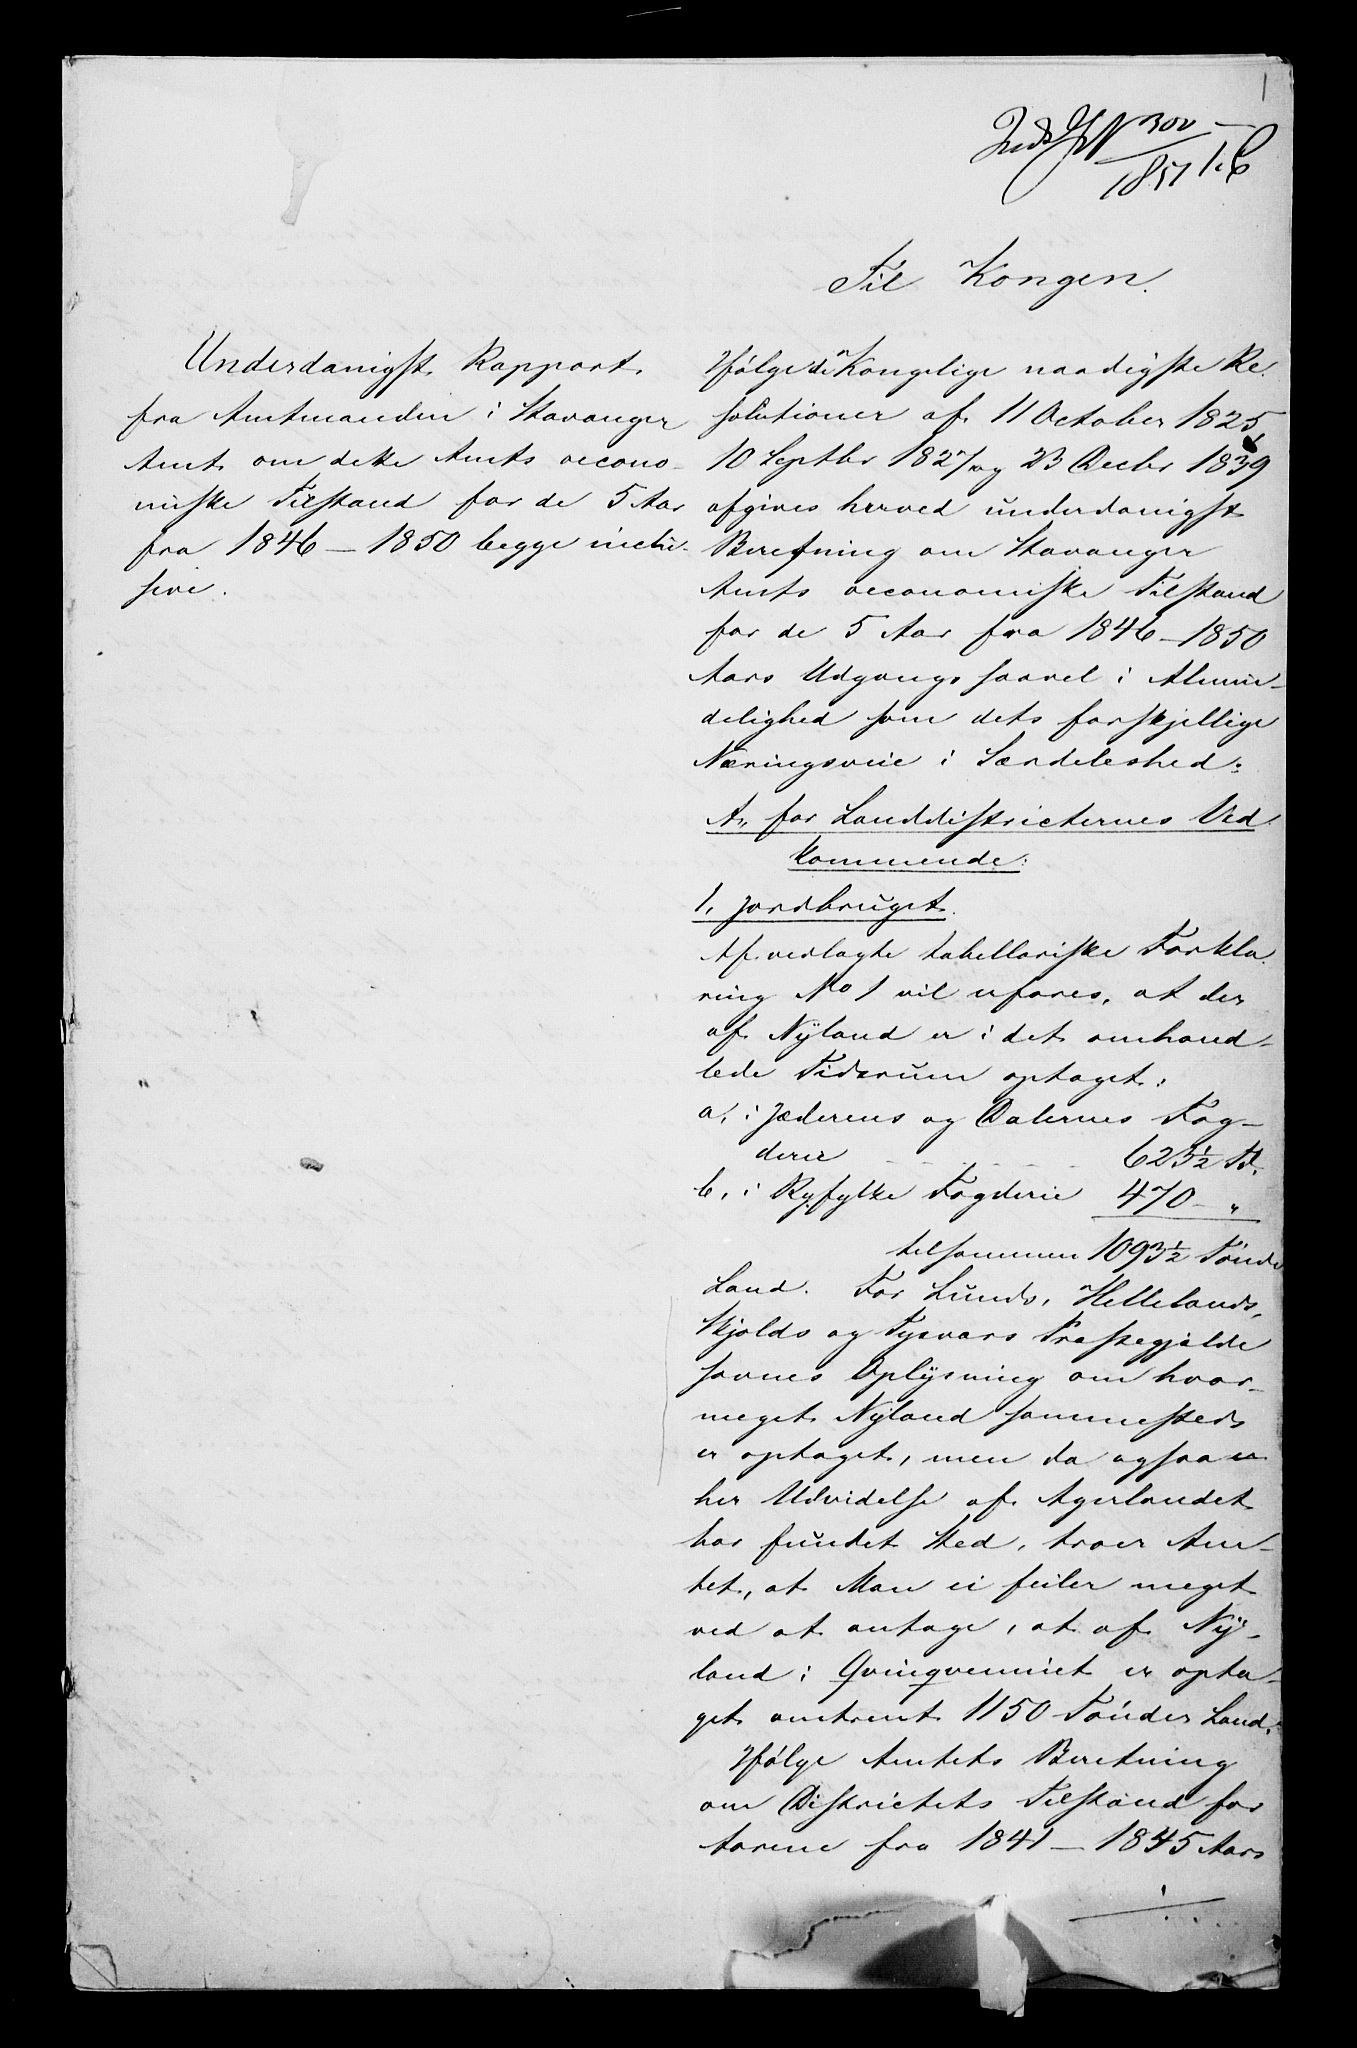 1
N 302
1851
Til Kongen.
Underdanigst Rapport
fra Amtmanden i Stavanger
Amt om dette Amts oecono-
miske Tilstand for de 5 Aar
fra 1846 – 1850 begge inclu-
sive.
Ifølge de Kongelige naadigste Re-
solutioner af 11 October 1825,
10 Septbr 1827 og 23 Decbr 1839
afgives herved underdanigst
Beretning om Stavanger
Amts oeconomiske Tilstand
for de 5 Aar fra 1846 – 1850
Aars Udgang saavel i Almin-
delighed som dets forskjellige
Næringsveie i Særdeleshed:
A, for Landdistricternes Ved-
kommende:
1, Jordbruget.
Af vedlagte tabellariske Forkla-
ring No 1 vil erfares, at der
af Nÿland er i det omhand-
lede Tidsrum optaget:
a, i Jæderens og Dalernes Fog-
derie 623½ Td.
b, i Ryfylke Fogderie 470 – "
tilsammen 1093½ Tønde
Land. For Lunds, Hellelands,
Skjolds og Tysværs Præstegjælde
savnes Oplÿsning om hvor-
meget Nÿland sammesteds
er optaget, men da ogsaa
her Udvidelse af Agerlandet
har fundet Sted, troer Am-
tet, at Man ei feiler meget
ved at antage, at af Nÿ-
land i Qvinqvenniet er opta-
get omtrent 1150 Tønder Land.
Ifølge Amtets Beretning
om Districtets Tilstand for
Aarene fra 1841 – 1845 Aars